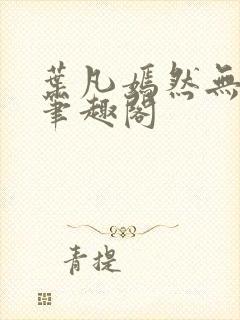 葉凡嫣然無
筆趣閣
青提